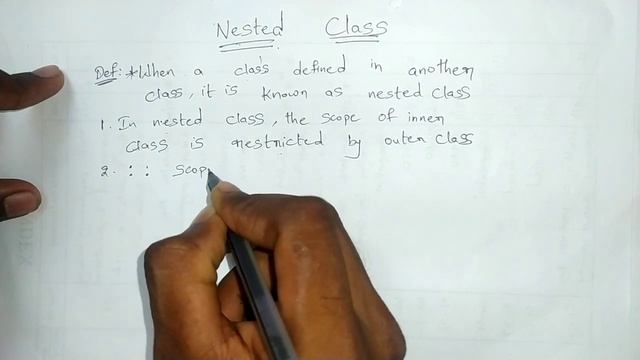 Nested Class
Def: * When a class defined in another
class, it is known as nested class
1. In nested class, the scope of inner
class is restricted by outer class
2. : : Scop